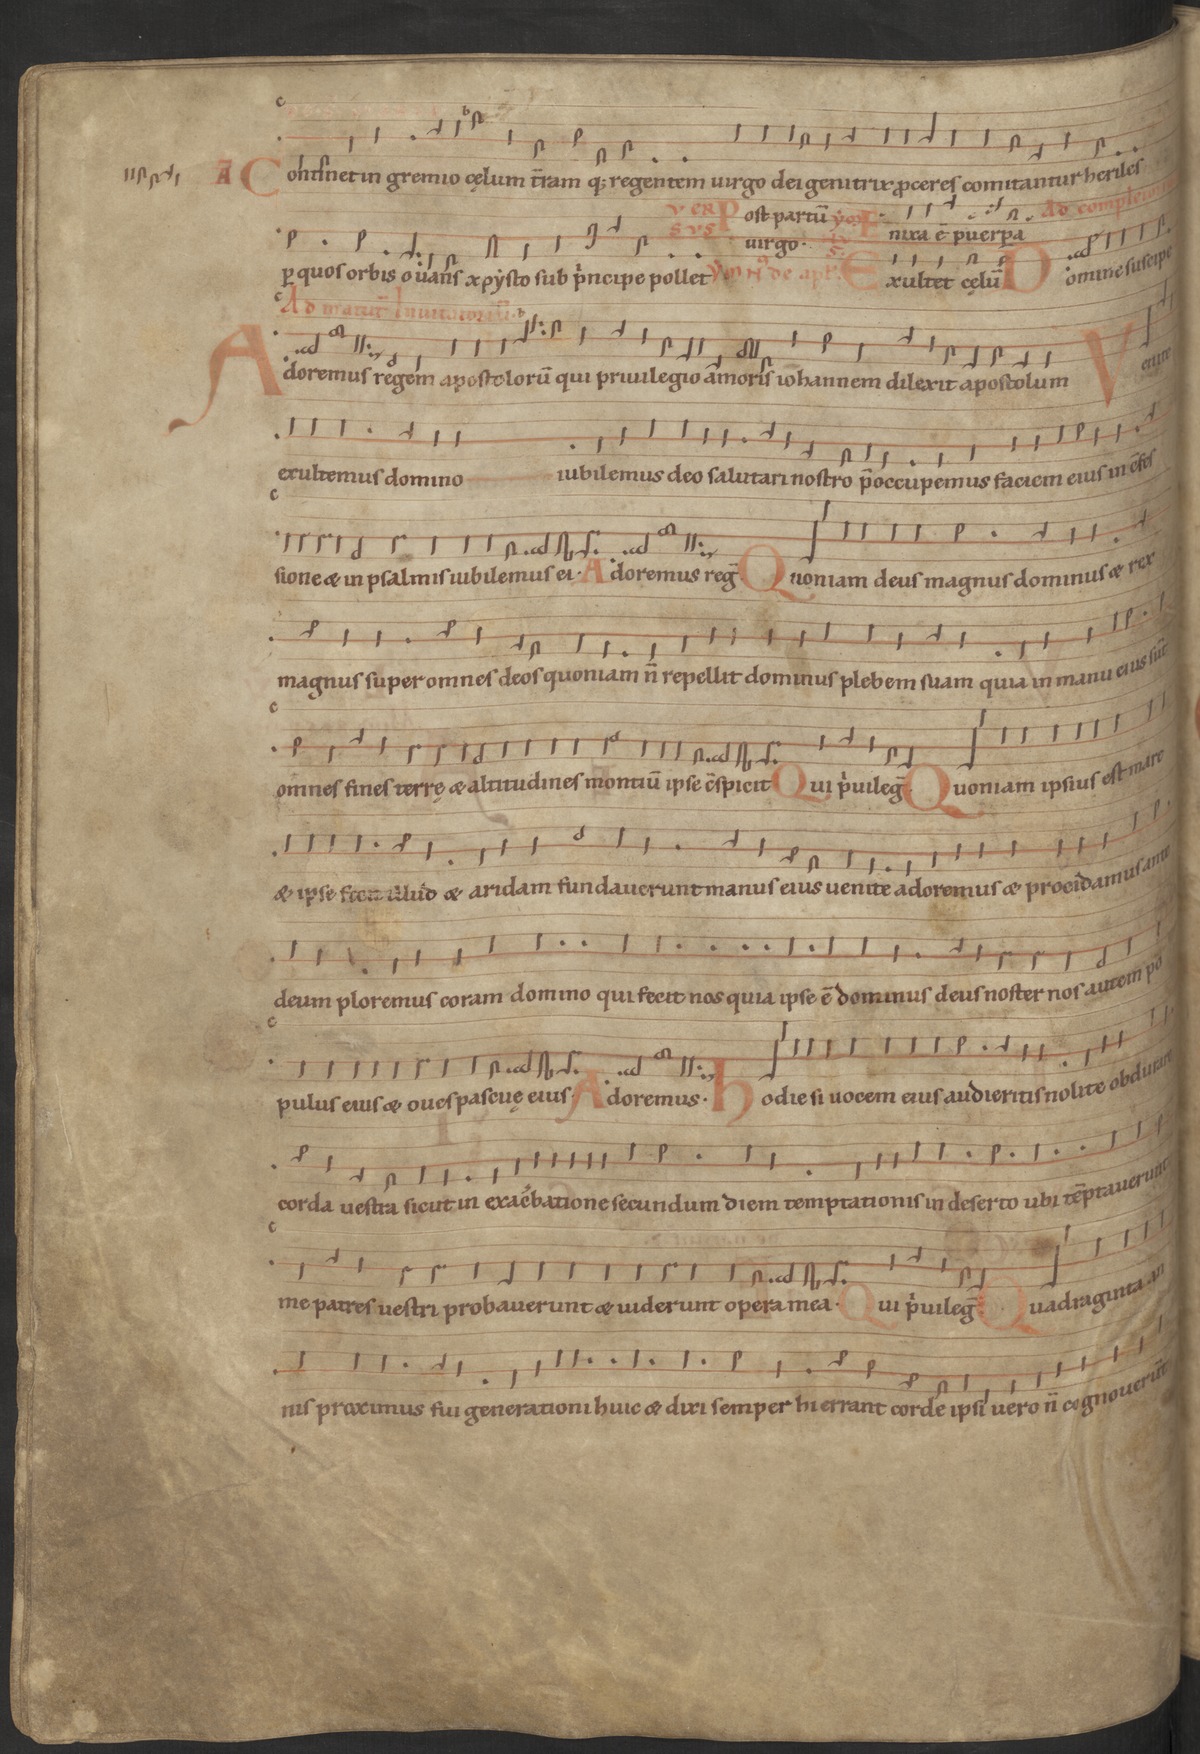 A Continet in gremio cęlum t̄ram q; regentem uirgo dei genitrix ꝓceres comitantur heriles
VERSVS Post partū
Enixa ē puerpa Ad completorium
ꝑ quos orbis ouans xpỹsto sub pͥncipe pollet
uirgo· Exultet cęlū Domine suscipe
Ad matut̄ Inuitatoriū·
Adoremus regem apostolorū qui priuilegio amoris iohannem dilexit apostolum Venite
exultemus domino iubilemus deo salutari nostro p̄occupemus faciem eius in c̄fes
sione & in psalmis iubilemus ei· Adoremus reḡ Quoniam deus magnus dominus & rex
magnus super omnes deos quoniam n̄ repellit dominus plebem suam quia in manu eius sūt
omnes fines terrę & altitudines montiū ipse c̄spicit Qui pͥuileḡ Quoniam ipsius est mare
& ipse fecit illud & aridam fundauerunt manus eius uenite adoremus & procidamus ante
deum ploremus coram domino qui fecit nos quia ipse ē dominus deus noster nos autem po
pulus eius & oues pascuę eius· Adoremus· Hodie si uocem eius audieritis nolite obdurare
corda uestra sicut in exac̄batione secundum diem temptationis in deserto ubi tēptauerunt
me patres uestri probauerunt & uiderunt opera mea· Qui pͥuileḡ Quadraginta an
nis proximus fui generationi huic & dixi semper hi errant corde ipsi uero n̄ cognouerūt